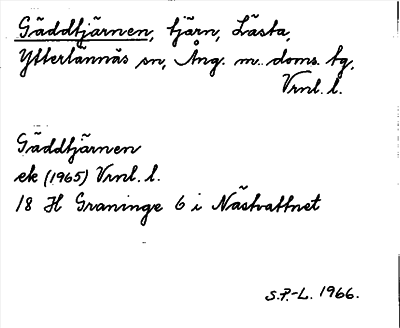 Gäddtjärnen, tjärn, Lästa,
Ytterlännäs sn, Ång. m. doms. tg,
Vrnl. l.
Gäddtjärnen
ek (1965) Vrnl. l.
18 H Graninge 6 i Nästvattnet
S.P.-L. 1966.